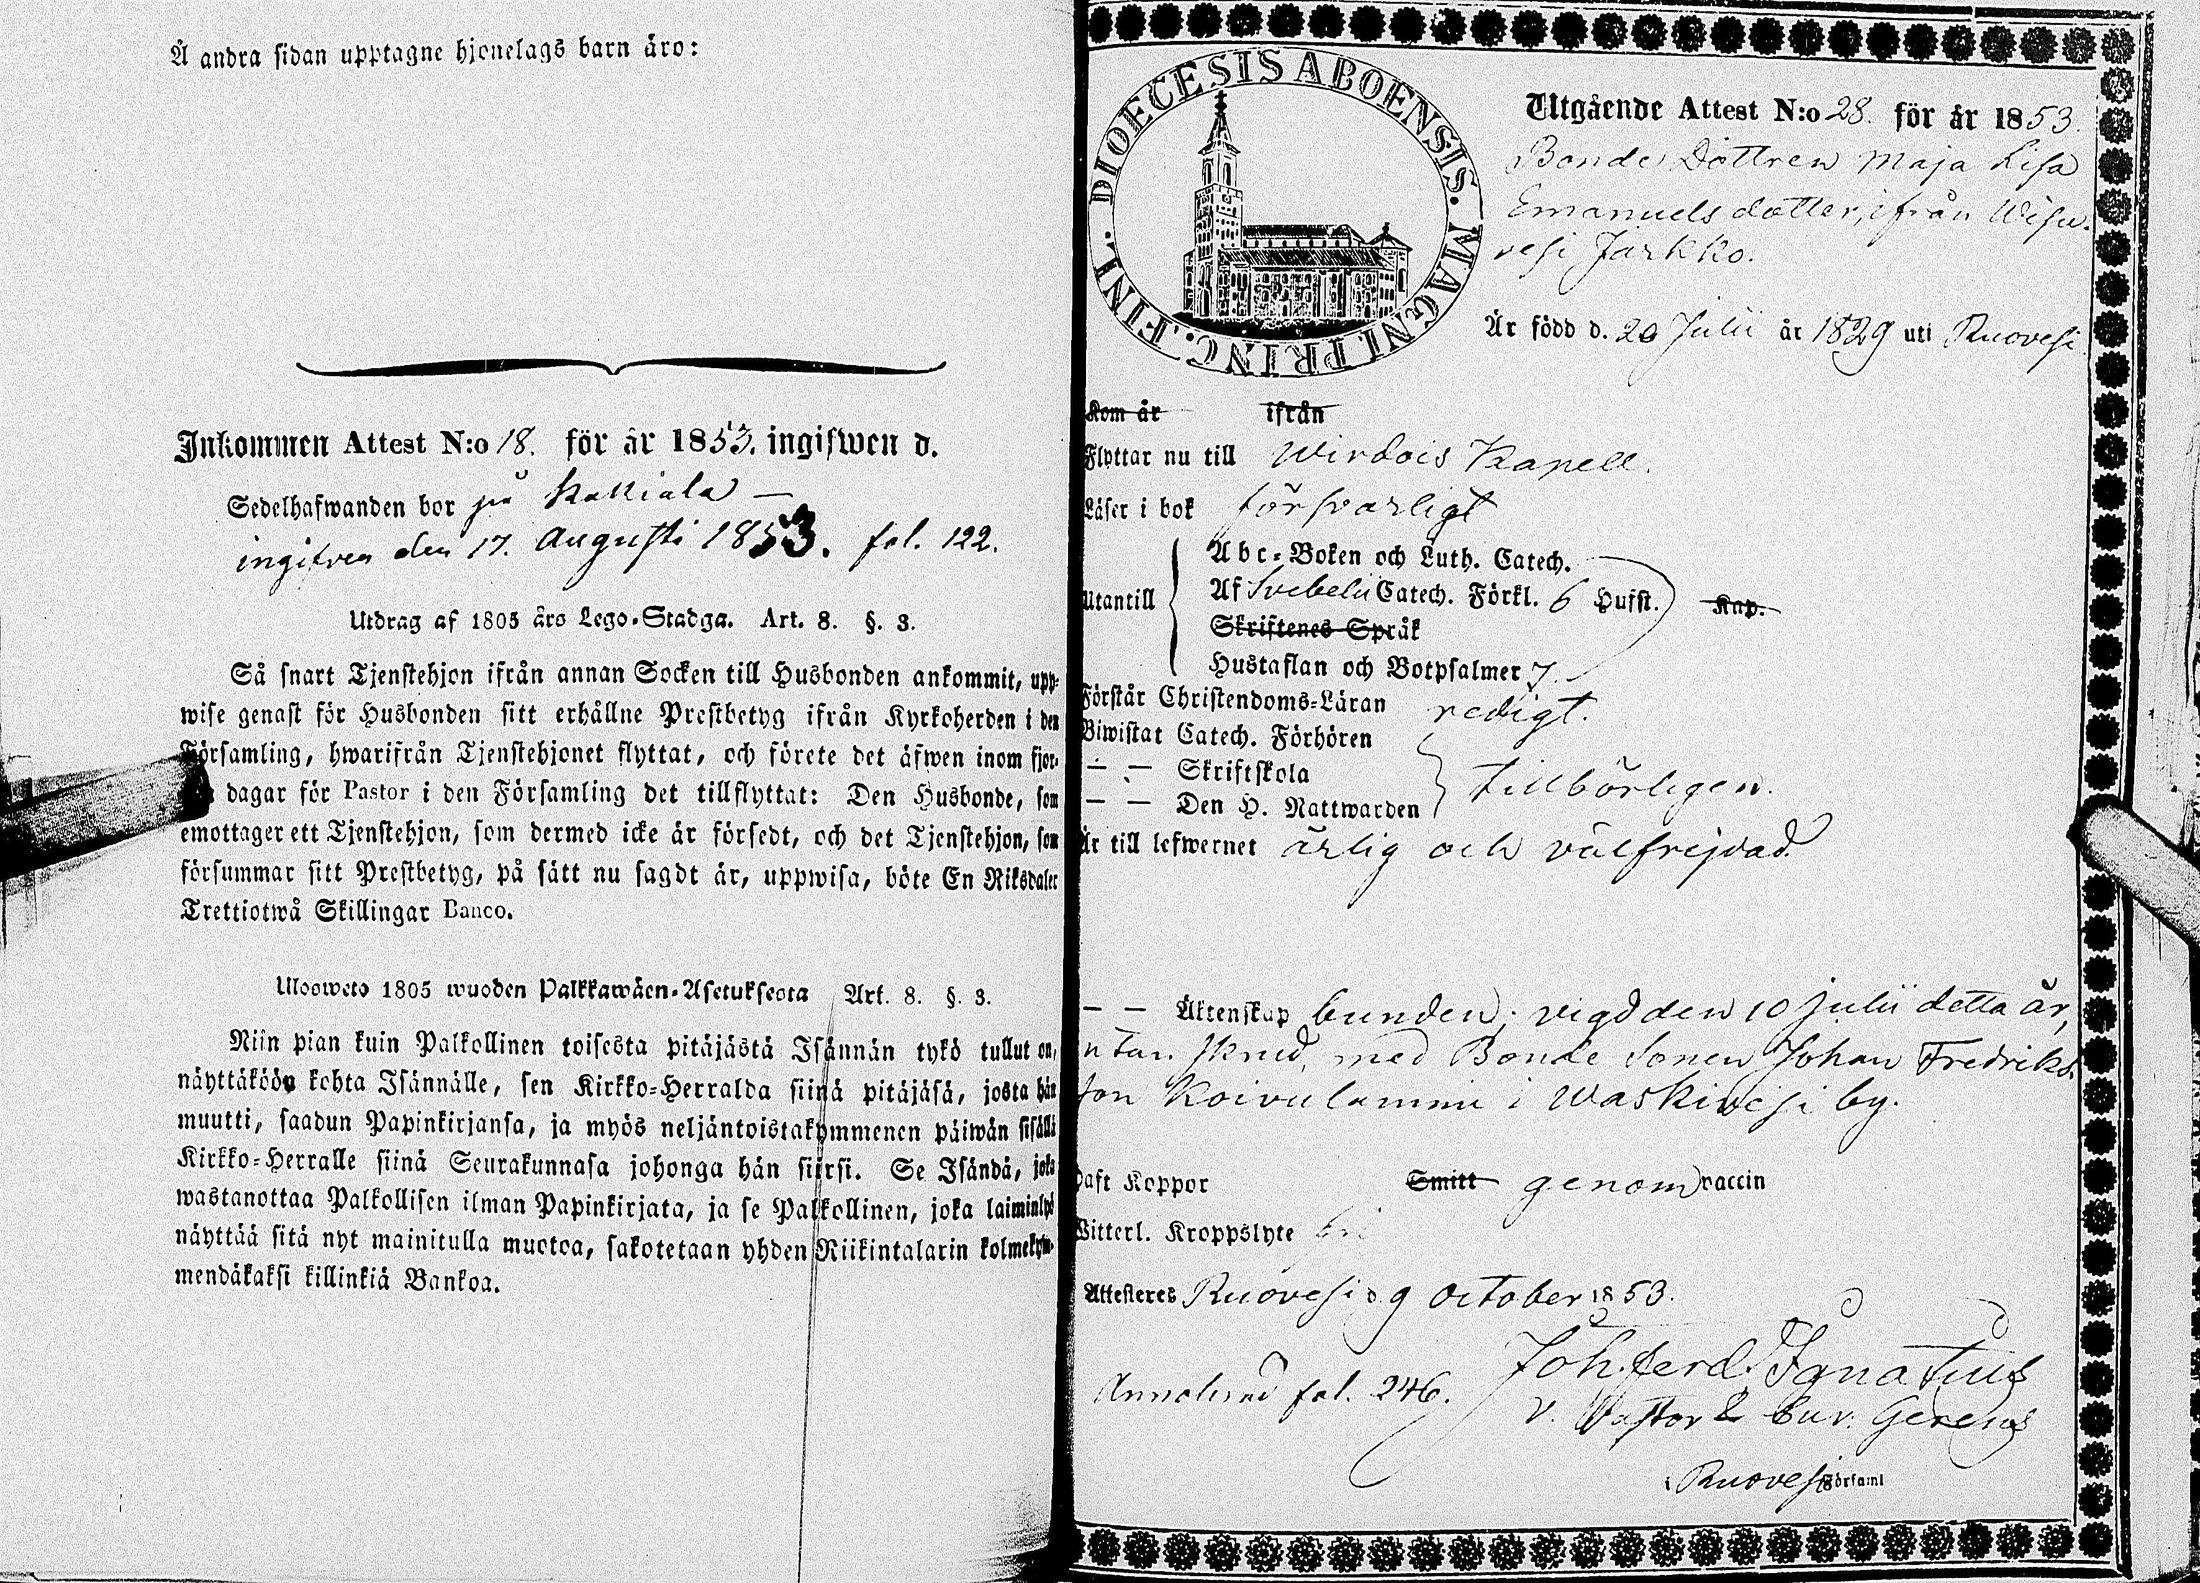 Å andra sidan upptagne hjonelags barn äro:
Inkommen Attest N:o 18. för år 1853. ingifwen d.
Sedelhafwanden bor på Kakiala —
ingifven den 17. Augusti 1853. fol. 122.
Utdrag af 1805 års Lego-Stadga. Art. 8. §. 3.
Så snart Tjenstehjon ifrån annan Socken till Husbonden ankommit, upp-
wise genast för Husbonden sitt erhållne Prestbetyg ifrån Kyrkoherden i den
Församling, hwarifrån Tjenstehjonet flyttat, och förete det äfwen inom fjor-
dagar för Pastor i den Församling det tillflyttat: Den Husbonde, som
emottager ett Tjenstehjon, som dermed icke är försedt, och det Tjenstehjon, som
försummar sitt Prestbetyg, på sätt nu sagdt är, uppwisa, böte En Riksdaler
Trettiotwå Skillingar Banco.
Ulosweto 1805 wuoden Palkkawäen-Asetuksesta Art. 8. §. 3.
Niin pian kuin Palkollinen toisesta pitäjästä Isännän tykö tullut on,
näyttäköön kohta Isännälle, sen Kirkko-Herralda siinä pitäjäsä, josta hän
muutti, saadun Papinkirjansa, ja myös neljäntoistakymmenen päiwän sisällä
Kirkko-Herralle siinä Seurakunnasa johonga hän siirsi. Se Isändä, joka
wastanottaa Palkollisen ilman Papinkirjata, ja se Palkollinen, joka laiminlyö
näyttää sitä nyt mainitulla muotoa, sakotetaan yhden Riikintalarin kolmekym-
mendäkaksi killinkiä Bankoa.
DIOECESIS ABOENSIS. MAGNI. PRINC. FINL.
Utgående Attest N:o 28. för år 1853.
Bonde Dottren Maja Lisa
Emanuels dotter, ifrån Wisu-
vesi Jarkko.
Är född d. 20 Julii år 1829 uti Ruovesi
Kom år ifrån
Flyttar nu till Wirdois Kapell.
Läser i bok försvarligt
Abc-Boken och Luth. Catech.
Utantill Af Svebelii Catech. Förkl. 6 Hufst. Kap.
Skriftenes Språk
Hustaflan och Botpsalmer 7.
Förstår Christendoms-Läran redigt.
Biwistat Catech. Förhören
— — Skriftskola tillbörligen.
— — Den H. Nattwarden
Är till lefwernet ärlig och välfrejdad.
— — Äktenskap bunden; vigd den 10 Julii detta år,
utan skrud, med Bonde Sonen Johan Fredriks-
son Koivulammi i Waskivesi by.
Haft Koppor Smitt genom vaccin
Witterl. Kroppslyte fri
Attesteres Ruovesi d. 9 October 1853.
Joh. Ferd. Ignatius
Annoterad fol. 246.
v. Pastor & Cur. Gerens
i Ruovesi Församl